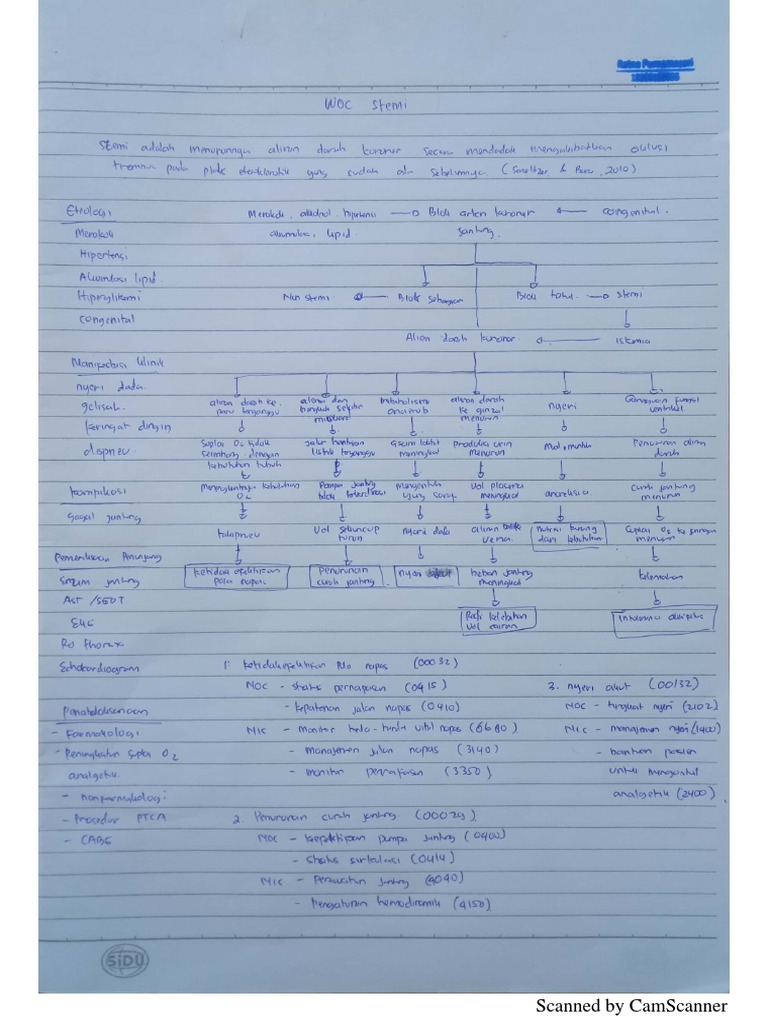 WOC Stemi
Stemi adalah menurunnya aliran darah koroner secara mendadak mengakibatkan oklusi
trombus pada plak yang sudah ada sebelumnya. (Smeltzer & Bare, 2010)
Etiologi
Merokok, alkohol, hipertensi
Blok arteri koroner
congenital.
Merokok
akumulasi, lipid
jantung.
Hipertensi
Akumulasi lipid
Hiperglikemi
Non stemi
Blok sebagian
Blok total
Stemi
congenital
Aliran darah koroner.
Iskemia
Manifestasi klinik
nyeri dada
gelisah.
aliran darah ke
paru terganggu
metabolisme
anaerob
aliran darah
ke ginjal
menurun
nyeri
Gangguan fungsi
ventrikel
keringat dingin
dispneu
Suplai O2 tidak
seimbang dengan
kebutuhan tubuh
jalur hantaran
listrik terganggu
Asam laktat
meningkat
Produksi urin
menurun
Mual, muntah
Penurunan aliran
darah
komplikasi
Meningkatnya kebutuhan
O2
Pompa jantung
tdk
menyentuh
ujung saraf
Vol plasma
meningkat
anoreksia
Curah jantung
menurun
gagal jantung
takipneu
Vol sekuncup
turun
nyeri dada
aliran
vena
nutrisi kurang
dari kebutuhan
Suplai O2 ke jaringan
menurun
Pemeriksaan Penunjang
Enzim jantung
ketidak efektifan
pola napas
Penurunan
curah jantung
nyeri
beban jantung
meningkat
kelemahan
AST / SGOT
Resti kelebihan
vol cairan
Intoleransi aktivitas
EKG
Ro thorax
Echokardiogram
1. ketidakefektifan pola napas (00032)
NOC - status pernapasan (0415)
- kepatenan jalan napas (0410)
NIC - Monitor tanda-tanda vital napas (6680)
- Manajemen jalan napas (3140)
- monitor pernafasan (3350)
3. nyeri akut (00132)
NOC - tingkat nyeri (2102)
NIC - manajemen nyeri (1400)
- bantuan pasien
untuk mengontrol
analgetik (2400)
Penatalaksanaan
- Farmakologi
- Peningkatan Suplai O2
analgetik.
- nonfarmakologi
- Procedur PTCA
- CABG
2. Penurunan curah jantung (00029)
NOC - keefektifan pompa jantung (0400)
- Status sirkulasi (0414)
NIC - Perawatan jantung (4040)
- Pengaturan hemodinamik (4150)
SiDU
Scanned by CamScanner